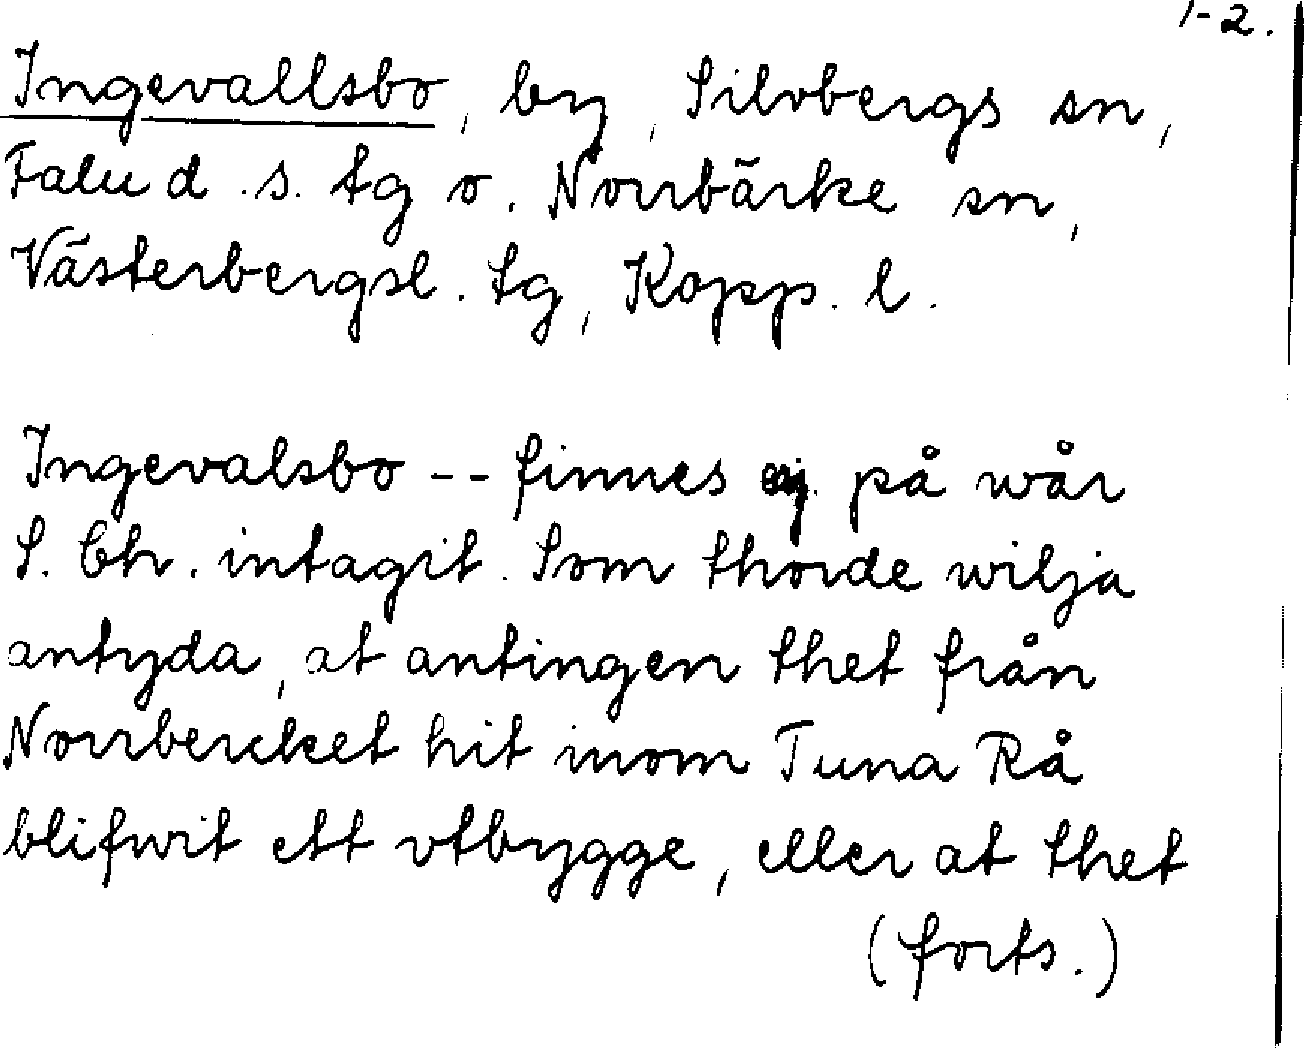 1-2.
Ingevallsbo, by, Silvbergs sn,
Falu d.s. tg o. Norrbärke sn,
Västerbergsl. tg, Kopp. l.
Ingevalsbo -- finnes ej på wår
S. Ch. intagit. Som thorde wilja
antyda, at antingen thet från
Norrbercket hit inom Tuna Rå
blifwit ett vtbygge, eller at thet
(forts.)